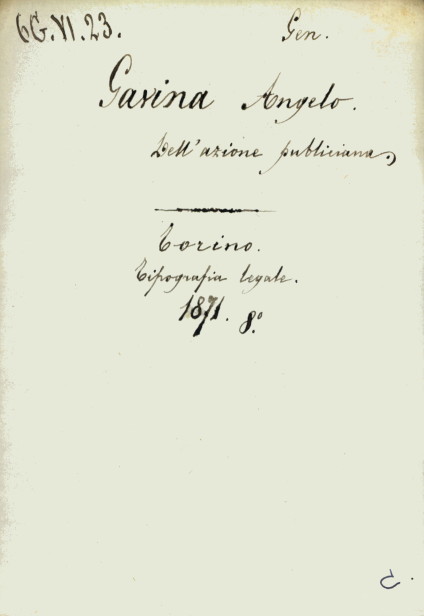 6G.VI.23. Gen.
Gavina Angelo.
Dell'azione publiciana.
Torino.
Tipografia legale.
1871. 8.º